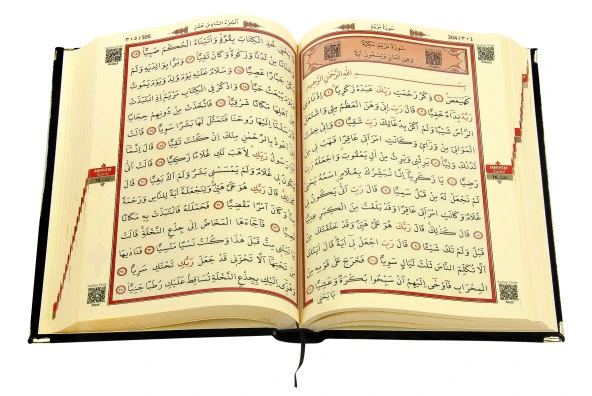 ٣٠٤ / 304
سُورَةُ مَرْيَمَ مَكِّيَّةٌ
وَهِيَ ثَمَانٍ وَتِسْعُونَ آيَةً
بِسْمِ اللّٰهِ الرَّحْمٰنِ الرَّحِيمِ
كٓهٰيٰعٓصٓ ذِكْرُ رَحْمَتِ رَبِّكَ عَبْدَهُ زَكَرِيَّا اِذْ نَادٰى
رَبَّهُ نِدَاءً خَفِيًّا قَالَ رَبِّ اِنِّي وَهَنَ الْعَظْمُ مِنِّي وَاشْتَعَلَ
الرَّأْسُ شَيْبًا وَلَمْ اَكُنْ بِدُعَائِكَ رَبِّ شَقِيًّا وَاِنِّي خِفْتُ
الْمَوَالِيَ مِنْ وَرَائِي وَكَانَتِ امْرَاَتِي عَاقِرًا فَهَبْ لِي مِنْ
لَدُنْكَ وَلِيًّا يَرِثُنِي وَيَرِثُ مِنْ اٰلِ يَعْقُوبَ وَاجْعَلْهُ رَبِّ
رَضِيًّا يَا زَكَرِيَّا اِنَّا نُبَشِّرُكَ بِغُلَامٍ اسْمُهُ يَحْيٰى
لَمْ نَجْعَلْ لَهُ مِنْ قَبْلُ سَمِيًّا قَالَ رَبِّ اَنّٰى يَكُونُ لِي
غُلَامٌ وَكَانَتِ امْرَاَتِي عَاقِرًا وَقَدْ بَلَغْتُ مِنَ الْكِبَرِ عِتِيًّا
قَالَ كَذٰلِكَ قَالَ رَبُّكَ هُوَ عَلَيَّ هَيِّنٌ وَقَدْ خَلَقْتُكَ مِنْ
قَبْلُ وَلَمْ تَكُ شَيْئًا قَالَ رَبِّ اجْعَلْ لِي اٰيَةً قَالَ اٰيَتُكَ
اَلَّا تُكَلِّمَ النَّاسَ ثَلٰثَ لَيَالٍ سَوِيًّا فَخَرَجَ عَلٰى قَوْمِهِ مِنَ
الْمِحْرَابِ فَاَوْحٰى اِلَيْهِمْ اَنْ سَبِّحُوا بُكْرَةً وَعَشِيًّا
يَا يَحْيٰى
اَلْجُزْءُ السَّادِسُ عَشَرَ
٣٠٥ / 305
يَحْيٰى خُذِ الْكِتَابَ بِقُوَّةٍ وَاٰتَيْنَاهُ الْحُكْمَ صَبِيًّا
وَحَنَانًا مِنْ لَدُنَّا وَزَكٰوةً وَكَانَ تَقِيًّا وَبَرًّا بِوَالِدَيْهِ وَلَمْ
يَكُنْ جَبَّارًا عَصِيًّا وَسَلَامٌ عَلَيْهِ يَوْمَ وُلِدَ وَيَوْمَ يَمُوتُ
وَيَوْمَ يُبْعَثُ حَيًّا وَاذْكُرْ فِي الْكِتَابِ مَرْيَمَ اِذِ انْتَبَذَتْ
مِنْ اَهْلِهَا مَكَانًا شَرْقِيًّا فَاتَّخَذَتْ مِنْ دُونِهِمْ حِجَابًا
فَاَرْسَلْنَا اِلَيْهَا رُوحَنَا فَتَمَثَّلَ لَهَا بَشَرًا سَوِيًّا قَالَتْ اِنِّي
اَعُوذُ بِالرَّحْمٰنِ مِنْكَ اِنْ كُنْتَ تَقِيًّا قَالَ اِنَّمَا
اَنَا رَسُولُ رَبِّكِ لِاَهَبَ لَكِ غُلَامًا زَكِيًّا قَالَتْ اَنّٰى
يَكُونُ لِي غُلَامٌ وَلَمْ يَمْسَسْنِي بَشَرٌ وَلَمْ اَكُ بَغِيًّا قَالَ
كَذٰلِكِ قَالَ رَبُّكِ هُوَ عَلَيَّ هَيِّنٌ وَلِنَجْعَلَهُ اٰيَةً لِلنَّاسِ وَرَحْمَةً
مِنَّا وَكَانَ اَمْرًا مَقْضِيًّا فَحَمَلَتْهُ فَانْتَبَذَتْ بِهِ مَكَانًا
قَصِيًّا فَاَجَاءَهَا الْمَخَاضُ اِلٰى جِذْعِ النَّخْلَةِ قَالَتْ
يَا لَيْتَنِي مِتُّ قَبْلَ هٰذَا وَكُنْتُ نَسْيًا مَنْسِيًّا فَنَادٰيهَا
مِنْ تَحْتِهَا اَلَّا تَحْزَنِي قَدْ جَعَلَ رَبُّكِ تَحْتَكِ سَرِيًّا
وَهُزِّي اِلَيْكِ بِجِذْعِ النَّخْلَةِ تُسَاقِطْ عَلَيْكِ رُطَبًا جَنِيًّا